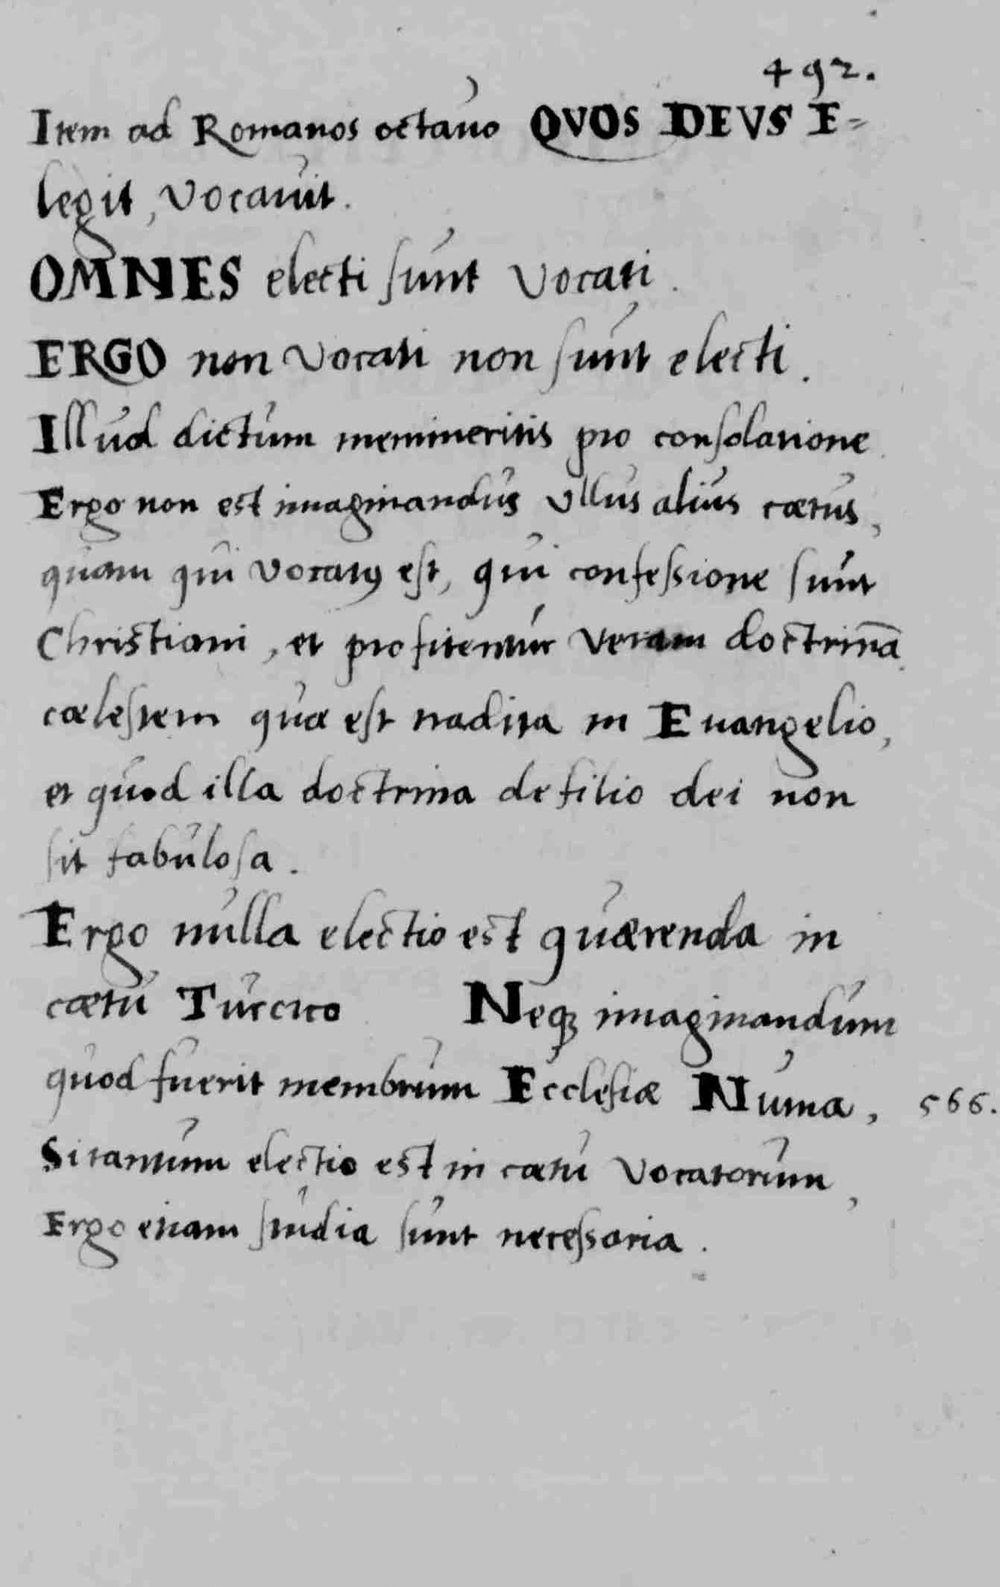 492.
Item ad Romanos octauo QVOS DEVS E-
legit, vocauit.
OMNES electi sunt vocati.
ERGO non vocati non sunt electi.
Illud dictum memineritis pro consolatione
Ergo non est imaginandus vllus alius cœtus,
quam qui vocatꝰ est, qui confessione sunt
Christiani, et profitentur veram doctrinā
cœlestem quæ est tradita in Euangelio,
et quod illa doctrina de filio dei non
sit fabulosa.
Ergo nulla electio est quærenda in
cœtu Turcico Neqꝫ imaginandum
quod fuerit membrum Ecclesiæ Numa, 566.
Si tantum electio est in cœtu vocatorum,
Ergo etiam studia sunt necessaria.